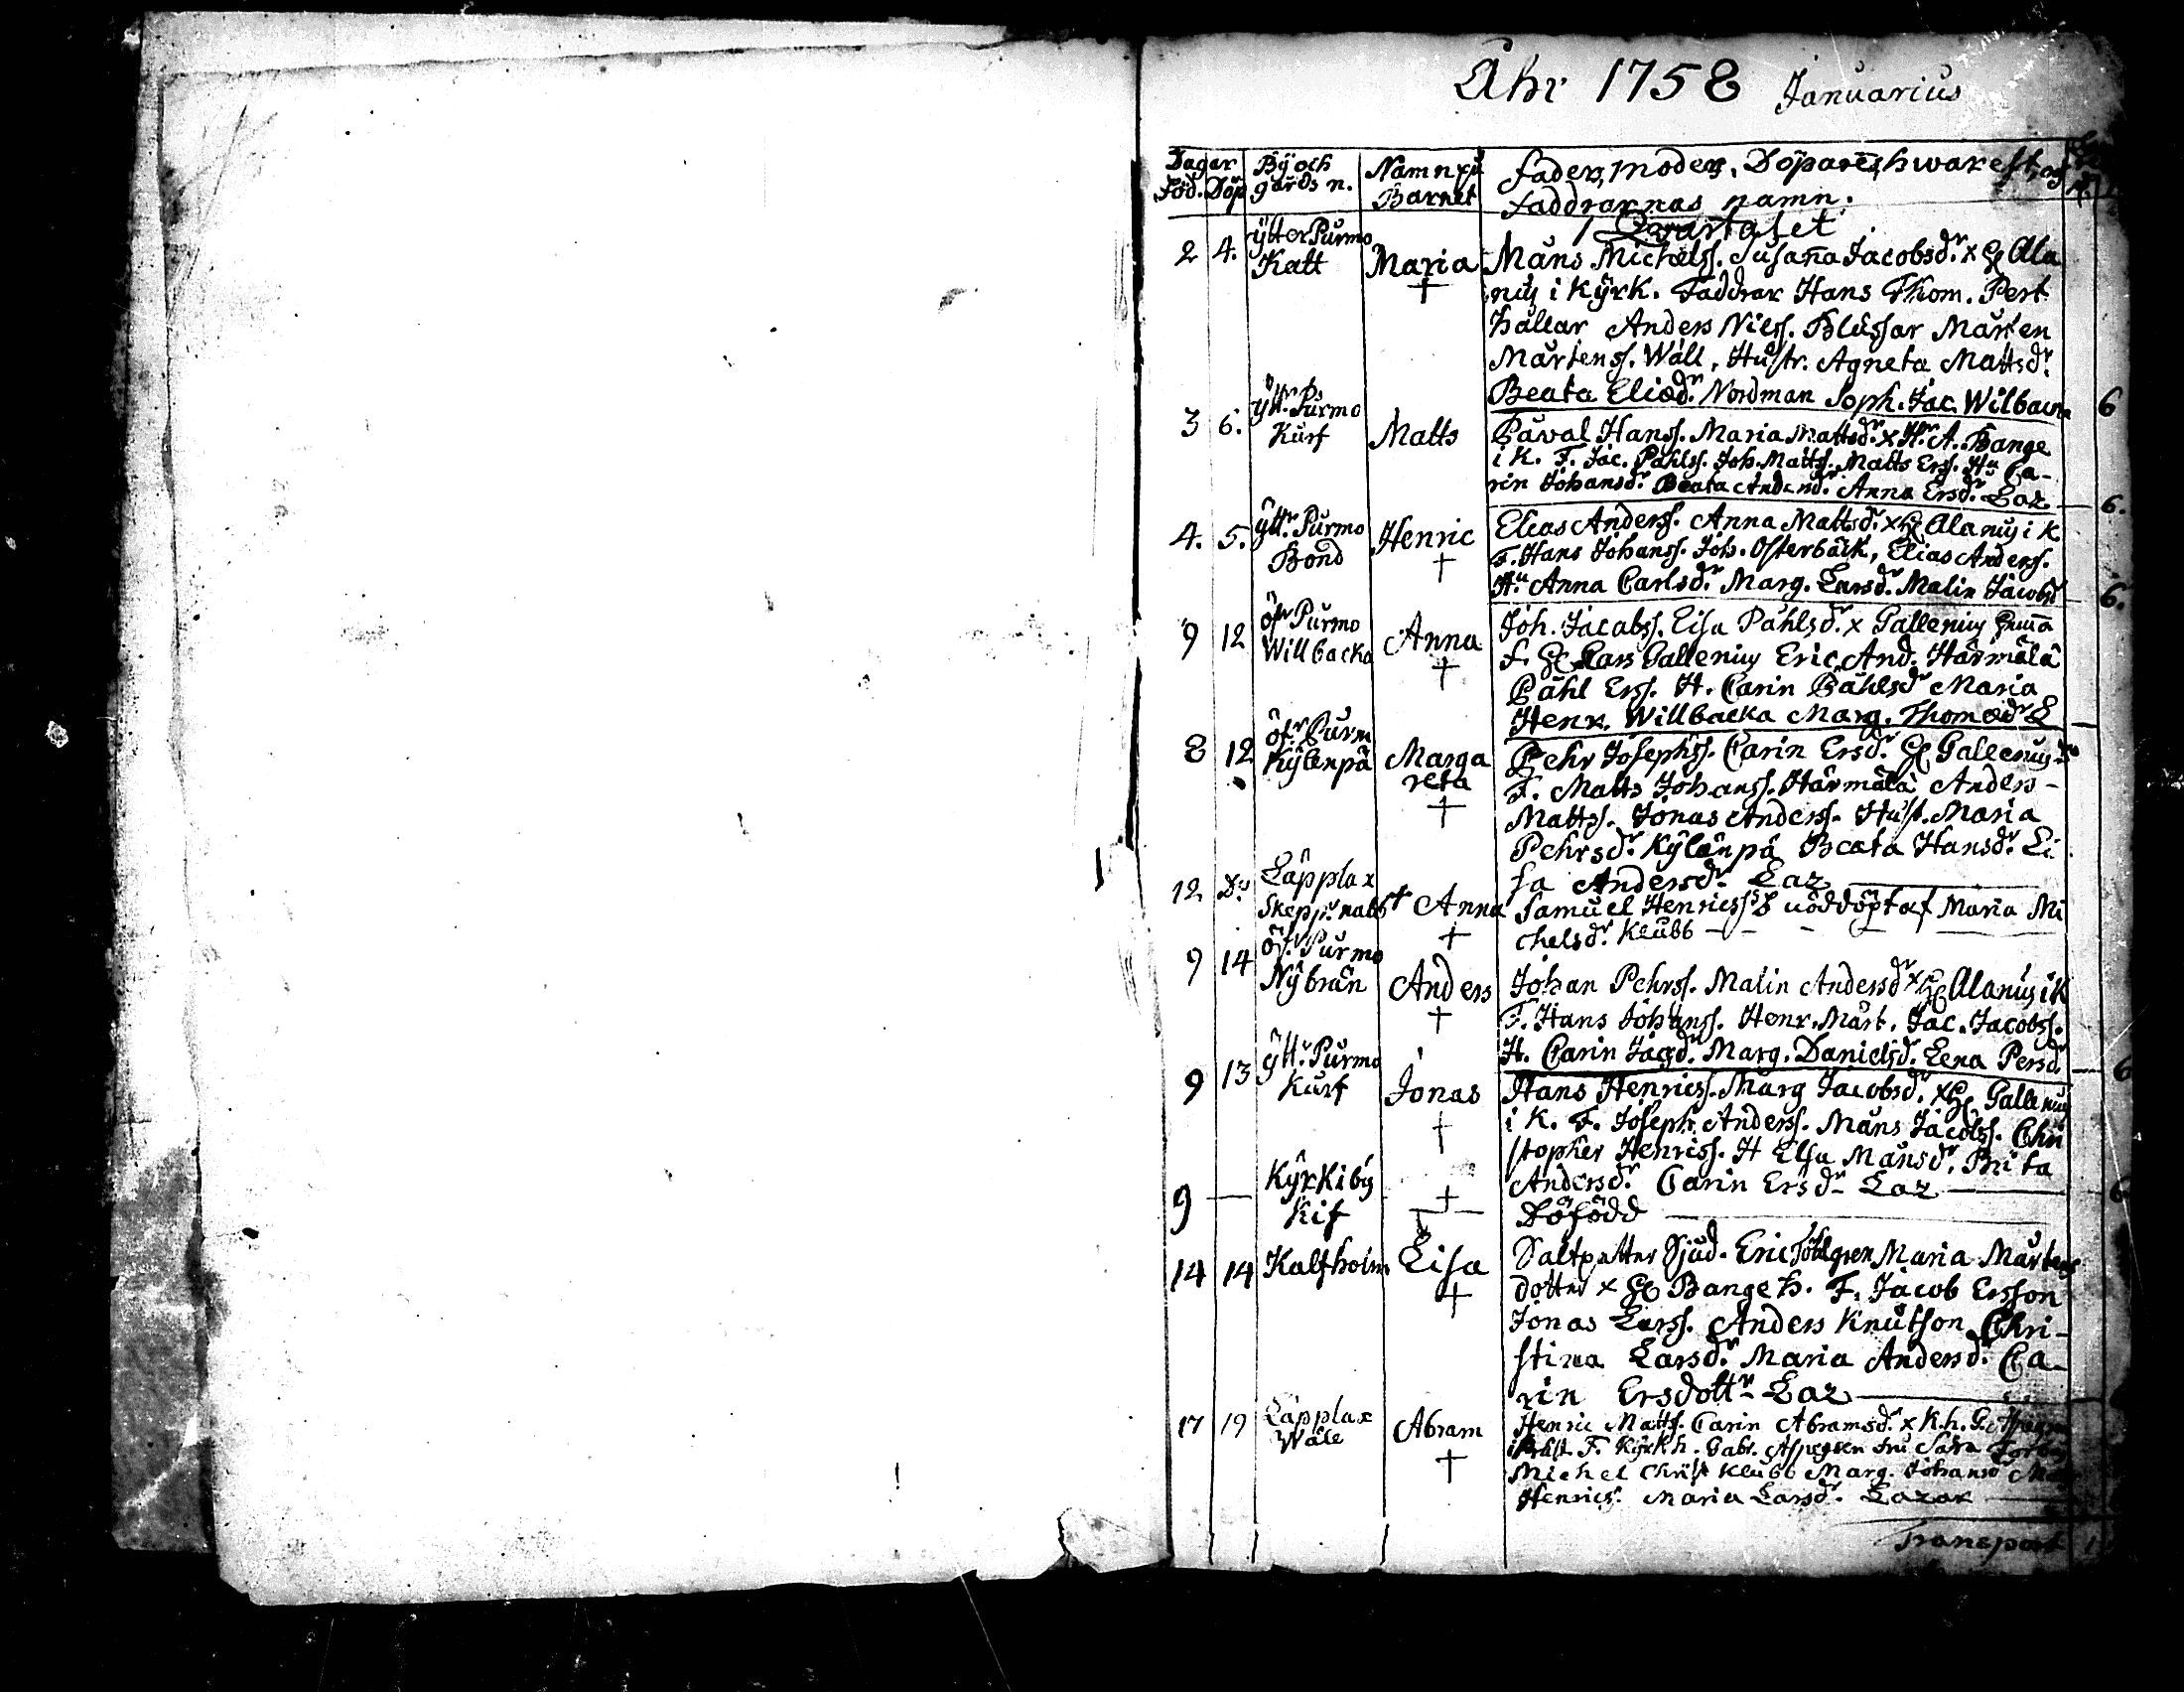 Åhr 1758 Januarius
Dagar Bÿ och Namn på Fader, Moder, Döpare, hwarest, og
Föd. Döp gårds n. Barnet Faddrarnas namn.
1 Quartalet
2 4. Ÿtter Purmo Katt Maria † Måns Michelss. Susan̄a Jacobsdr. x H Ala
nus i Kÿrk. Faddrar Hans Thom. Pert
hällar Anders Nilss. Blussar Mårten
Mårtenss. Wäll, Hustr. Agneta Mattsdr.
Beata Eliædr. Nordman Soph. Jac. Wilbacka 6
3 6. Ÿttr. Purmo Kurf Matts Påwal Hanss. Maria Mattsdr. x Hr. A. Bange
i K. F. Jac. Påhlss. Joh. Mattss. Matts Erss. Hu Ca-
rin Johansdr. Beata Andersdr. Anna Ersdr. Laz 6.
4. 5. Ÿttr. Purmo Bond Henric † Elias Anderss. Anna Mattsdr. x H Alanus i K
F. Hans Johanss. Joh. Österbäck, Elias Anderss.
Hu. Anna Carlsdr. Marg. Larsdr. Malin Jacobsd 6.
9 12 Öfr Purmo Willbacka Anna † Joh. Jacobss. Lisa Påhlsdr. x Gallenius
F. H Lars Gallenius Eric And. Härmälä
Påhl Erss. H. Carin Påhlsdr Maria
Henr. Willbacka Marg. Thomædr L
8 12 Öfr. Purm Kÿlenpä Marga reta † Pehr Josephss. Carin Ersdr. H Gallenius
F. Matts Johanss. Härmälä Anders
Mattss. Jonas Anderss. Hust. Maria
Pehrsdr. Kÿlänpä Beata Hansdr. Li
sa Andersdr. Laz
12 Do Läpplax Skepp. nabb Anna † Samuel Henricss. nöddöpt af Maria Mi
chelsdr. Klubb
9 14 Öfr. Purmo Nÿbrån Anders † Johan Pehrss. Malin Andersdr x H Alanus i K
F. Hans Johanss. Henr. Mårt. Jac. Jacobss.
H. Carin Jacsdr. Marg. Danielsdr. Lena Persdr 6
9 13 Ÿttr. Purmo Kurf Jonas † Hans Henricss. Marg Jacobsdr. x H Gallenius
i K. F. Joseph Anderss. Måns Jacobss. Chri
stopher Henricss. H Elsa Månsdr. Brita
Andersdr. Carin Ersdr. Laz 6
9 — Kÿrkibÿ Kif † Döfödd
14 14 Kalfholm Lisa † Saltpetter Sjud. Eric Maria Mårtens
dotter x H Bange h. F. Jacob Ersson
Jonas Larss. Anders Knutson Chri-
stina Larsdr. Maria Andersdr. Ca-
rin Ersdottr. Laz
17 19 Läpplax Wäle Abram † Henric Mattss. Carin Abramsdr. x K.h. G.
F. Kÿrkh. Gabr. Aspegren Fru Sara
Michel Christ Klubb Marg. Johansd
Henrics. Maria Larsdr. Lazar
Transport 1